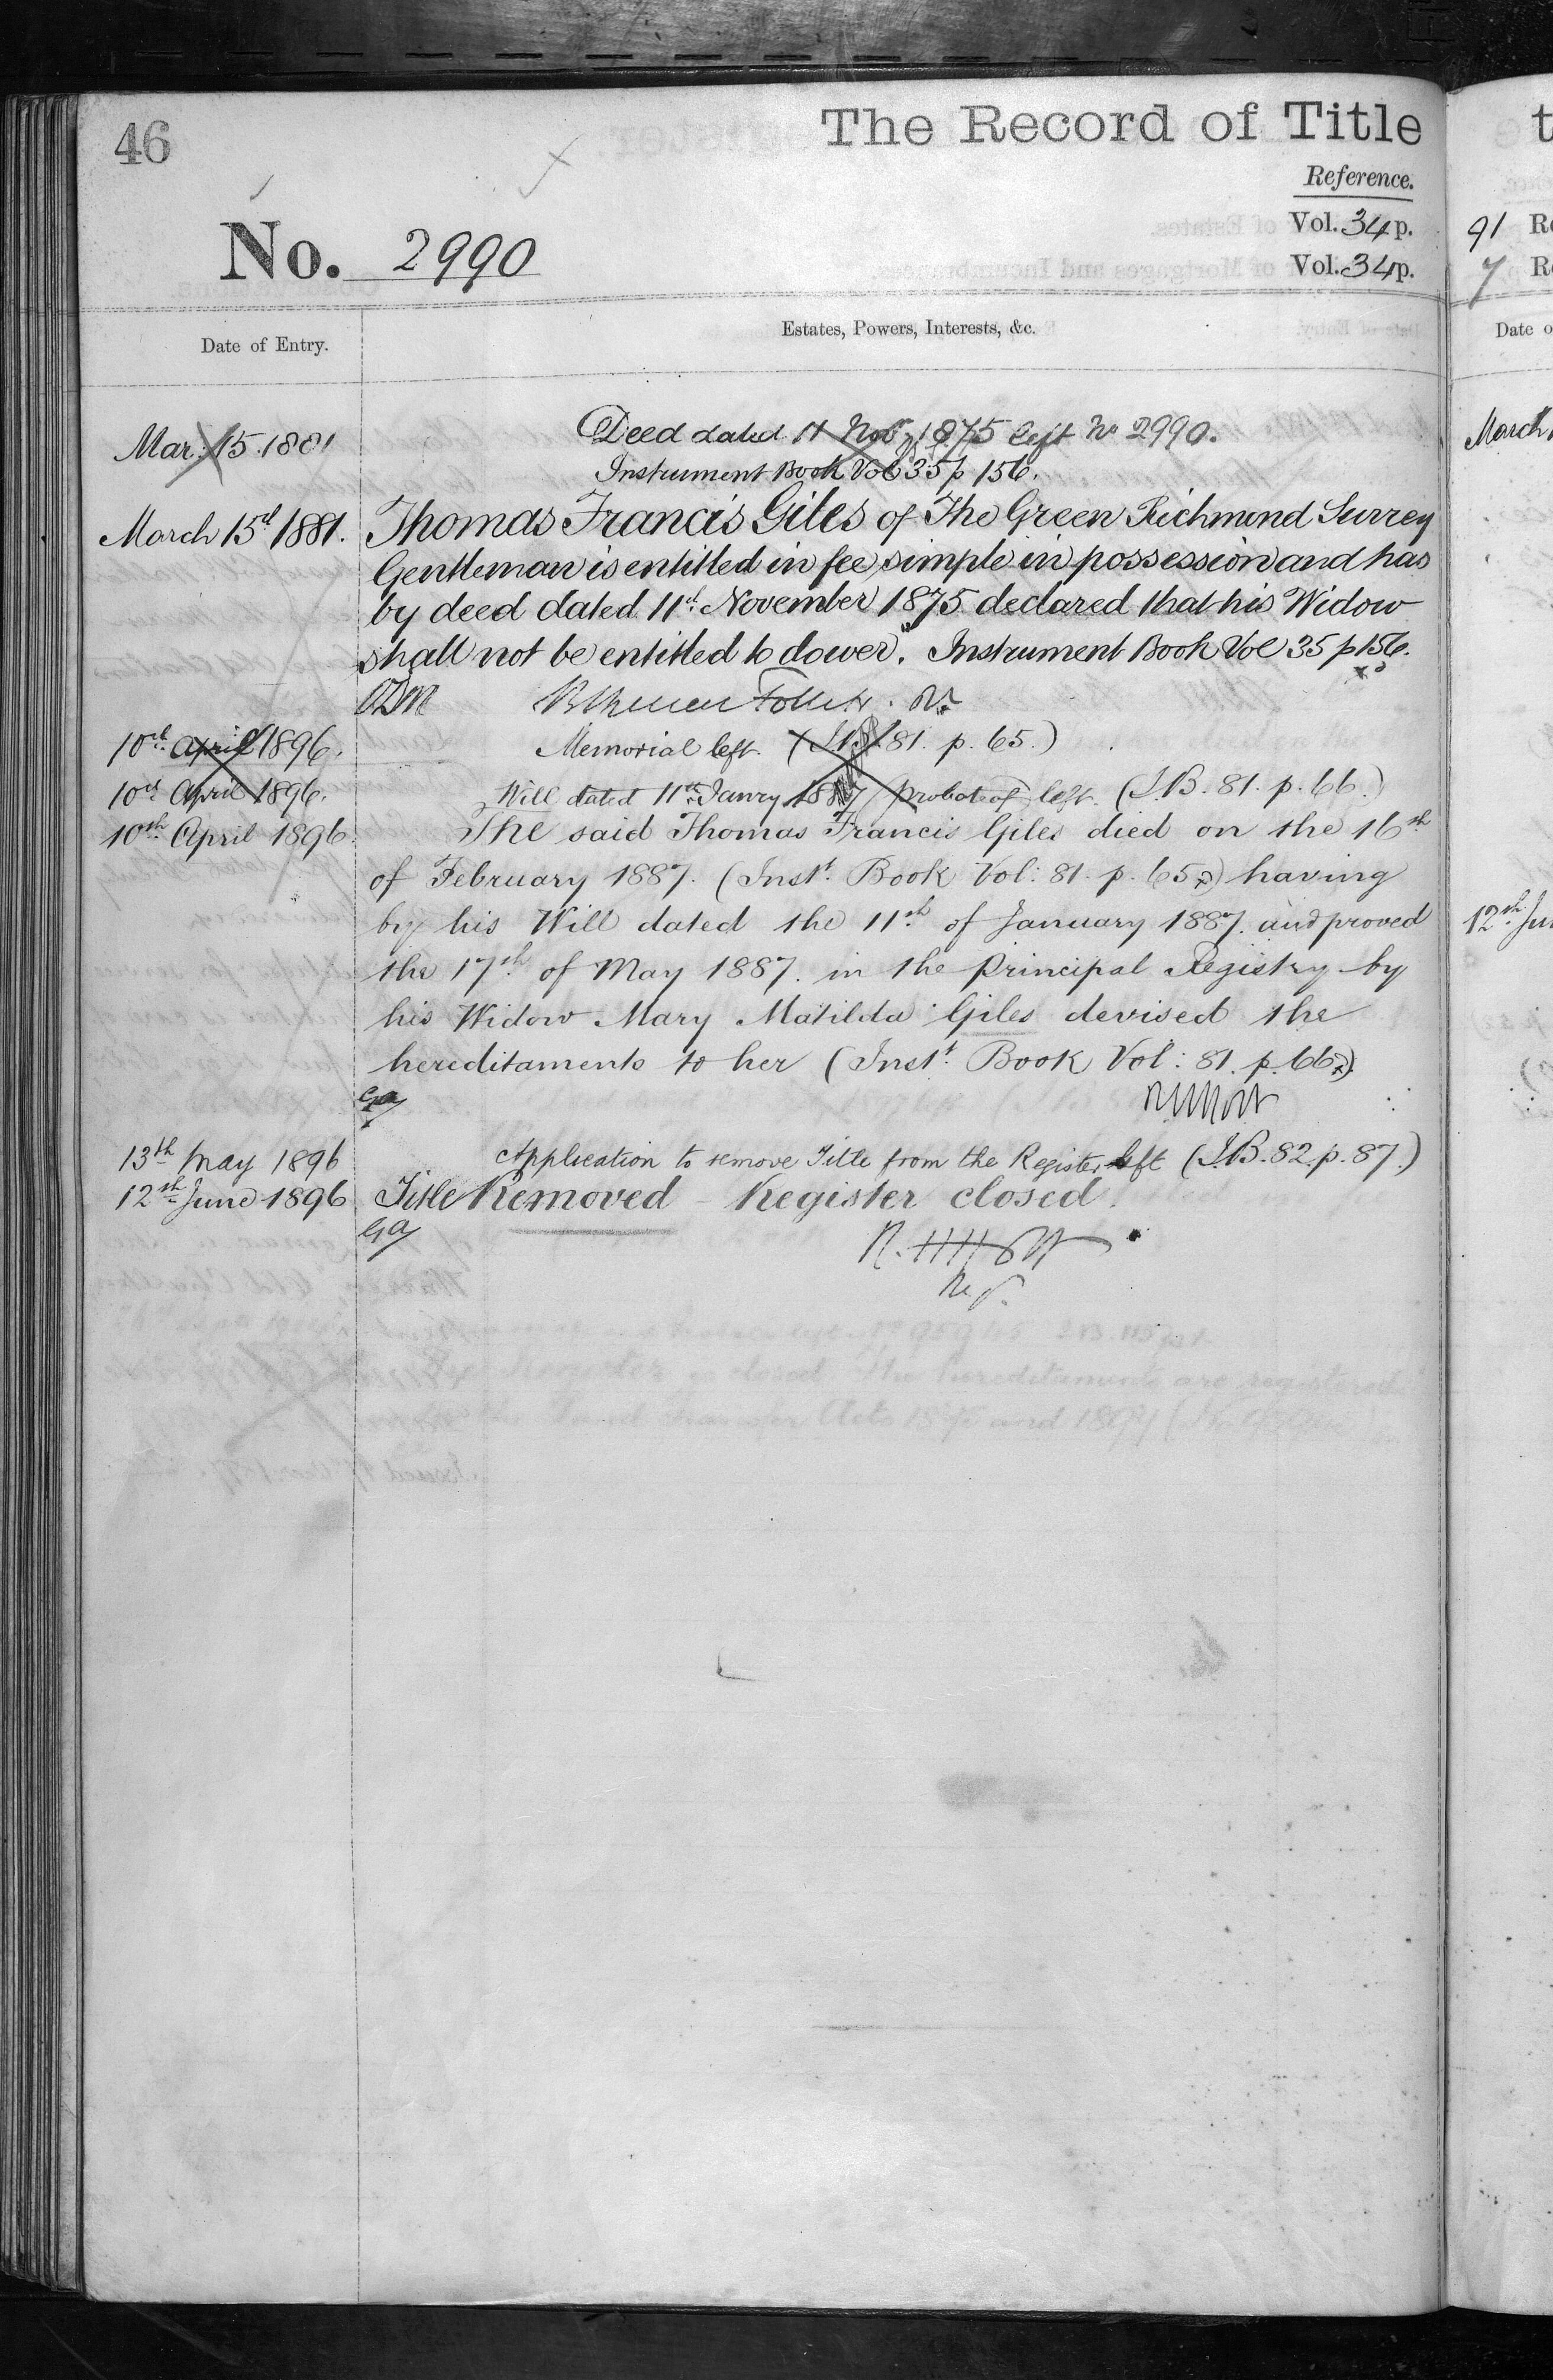 46
The Record of Title
Reference.
No. 2990
Vol. 34 p. 91
Vol. 34 p. 7
Date of Entry.
Estates, Powers, Interests, &c.
Date o
Mar: 15. 1881
Deed dated 11 Nov 1875 left No 2990.
March
Instrument Book Vol 35 p 156.
March 15th 1881.
Thomas Francis Giles of The Green Richmond Surrey
Gentleman is entitled in fee simple in possession and has
by deed dated 11th November 1875 declared that his Widow
shall not be entitled to dower. Instrument Book Vol 35 p 156.
10th April 1896.
Memorial left. (I.B. 81. p. 65.)
10th April 1896.
Will dated 11th Janry 1887 (Probate of) left. (I.B. 81. p. 66.)
10th April 1896.
The said Thomas Francis Giles died on the 16th
of February 1887. (Inst. Book Vol: 81. p. 65) having
by his Will dated the 11th of January 1887. and proved
12th Ju
the 17th of May 1887. in the Principal Registry by
his Widow Mary Matilda Giles devised the
hereditaments to her (Inst. Book Vol: 81. p. 66)
GA
13th May 1896
Application to remove Title from the Register left (I.B. 82. p. 87.)
12th June 1896
Title Removed - Register closed.
GA